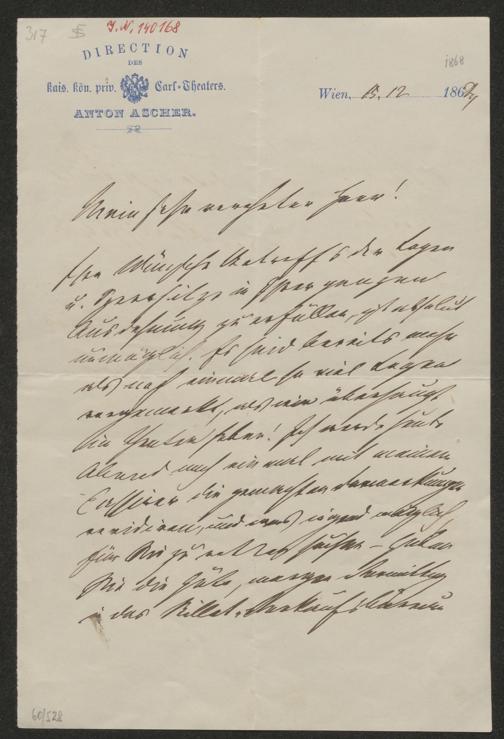 317
I.N. 140168
DIRECTION
DES
kais. kön. priv. Carl-Theaters.
ANTON ASCHER.
1868
Wien, 15. 12 186
Mein sehr verehrter Herr!
Ihre Wünsche betreffs der Logen
u. Sperrsitze in Ihrer ganzen
Ausdehnung zu erfüllen, ist absolut
unmöglich. Es sind bereits mehr
als noch einmal so viel Logen
vorgemerkt, als wir überhaupt
im Theater haben! Ich werde heute
Abend noch einmal mit meinem
Cassierer die gemachten Vormerkungen
revidiren, und was irgend möglich
für Sie zu retten suchen – haben
Sie die Güte, morgen Vormittag
in das Billet-Verkaufsbureau
60/528